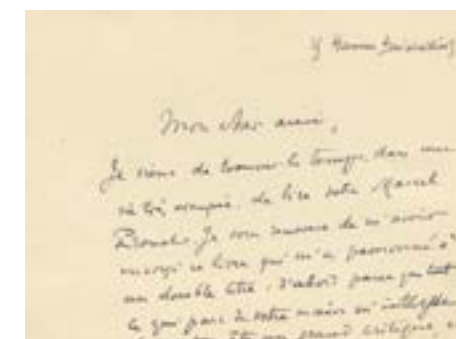 Mon cher ami,
Je viens de trouver le temps, dans une
vie très occupée, de lire votre Marcel
Proust. Je vous remercie de m'avoir
envoyé ce livre qui m'a passionné à
un double titre, d'abord parce que tout
ce qui part de votre main m'
grand critique,